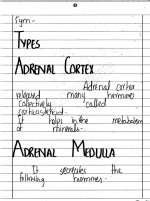 Sym -
TYPES
ADRENAL CORTEX
Adrenal cortex
released many hormones
collectively called
corticosteroid.
It helps in the metabolism
of minerals.
ADRENAL MEDULLA
It secreates the
following hormones.